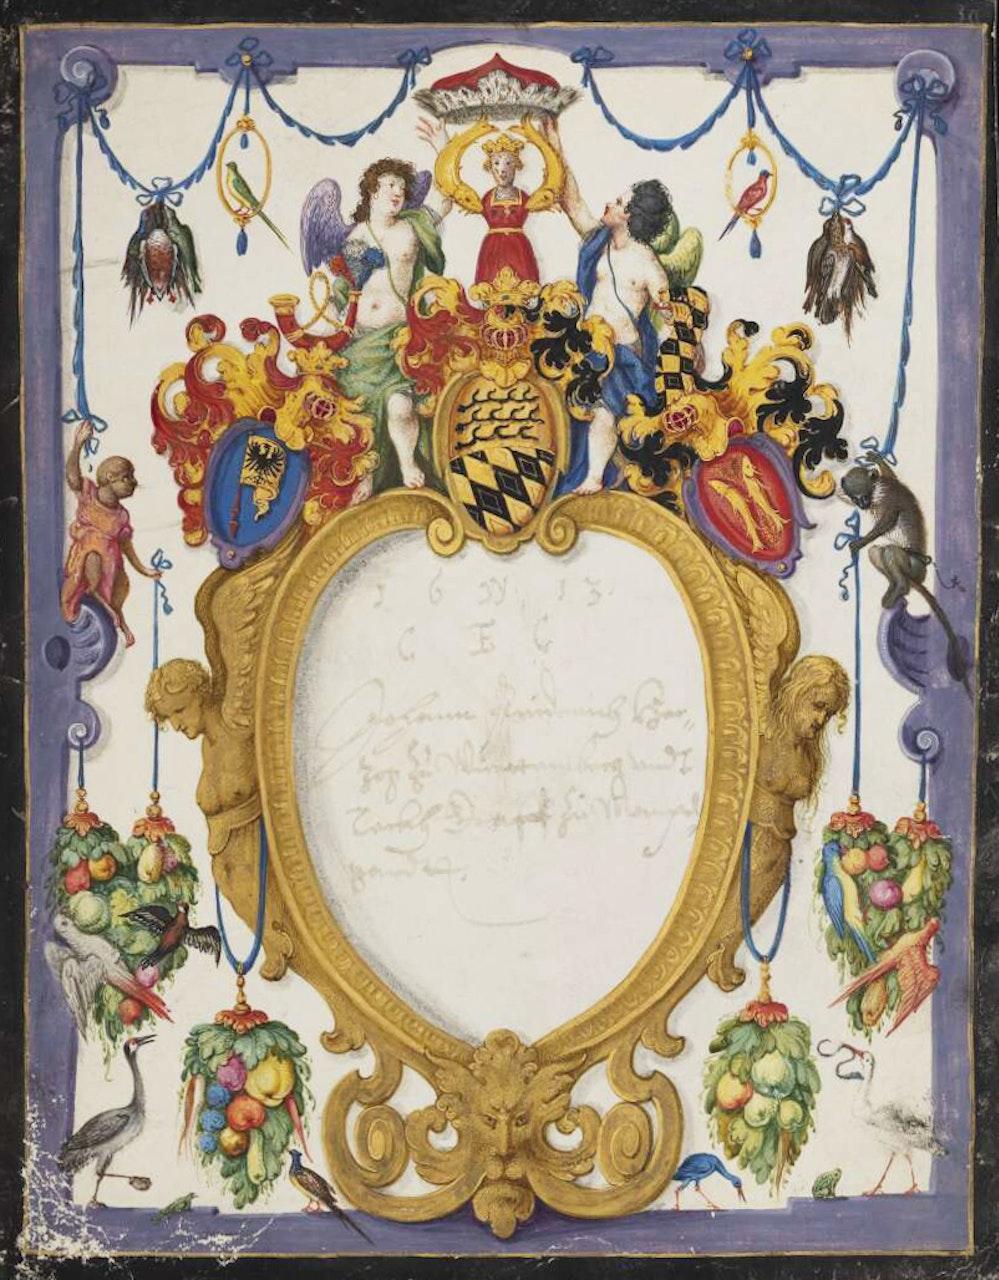 1 6 W 13.
C E C
Johann Friderich Her-
zog zu Württemberg undt
Teckh Graff zu Mompel
gardt.